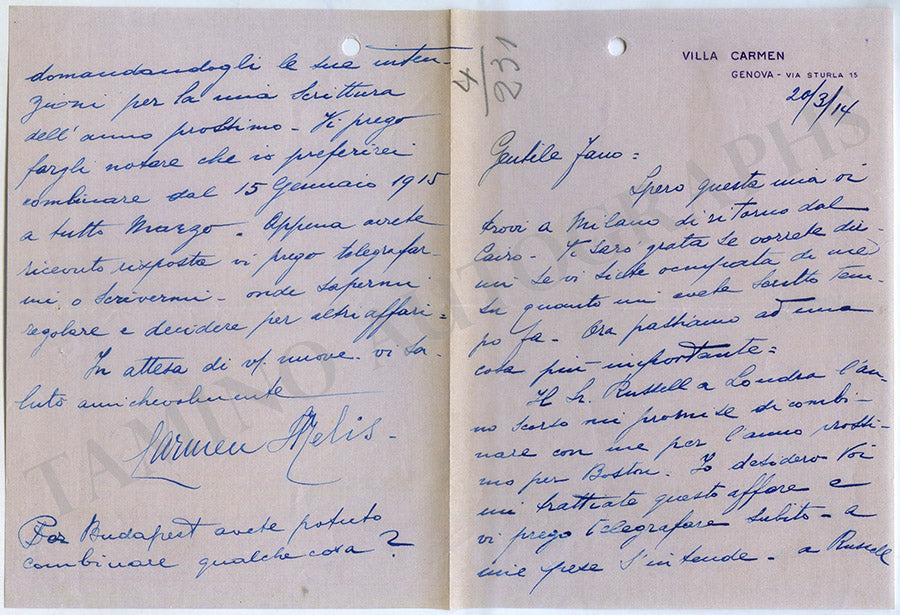 VILLA CARMEN
GENOVA - VIA STURLA 15
20/3/14
Gentile Fano =
Spero questa mia vi
trovi a Milano di ritorno dal
Cairo - Ti sarò grata se vorrete dir-
mi se vi siete occupata di me e
su quanto mi avete scritto tem-
po fa - Ora passiamo ad una
cosa più importante =
Il Sr. Russell a Londra l'an-
no scorso mi promise di combi-
nare con me per l'anno prossi-
mo per Boston. Io desidero Voi
mi trattiate questo affare e
vi prego telegrafare subito - a
mie spese s'intende - a Russell
domandandogli le sue inten-
zioni per la mia scrittura
dell'anno prossimo - Vi prego
fargli notare che io preferirei
combinare dal 15 Gennaio 1915
a tutto Marzo - Appena avrete
ricevuto risposta vi prego telegrafar-
mi o scrivermi - onde sapermi
regolare e decidere per altri affari =
In attesa di vs/ nuove - vi sa-
luto amichevolmente
Carmen Melis -
Per Budapest avete potuto
combinare qualche cosa?
4/231
TAMINO AUTOGRAPHS